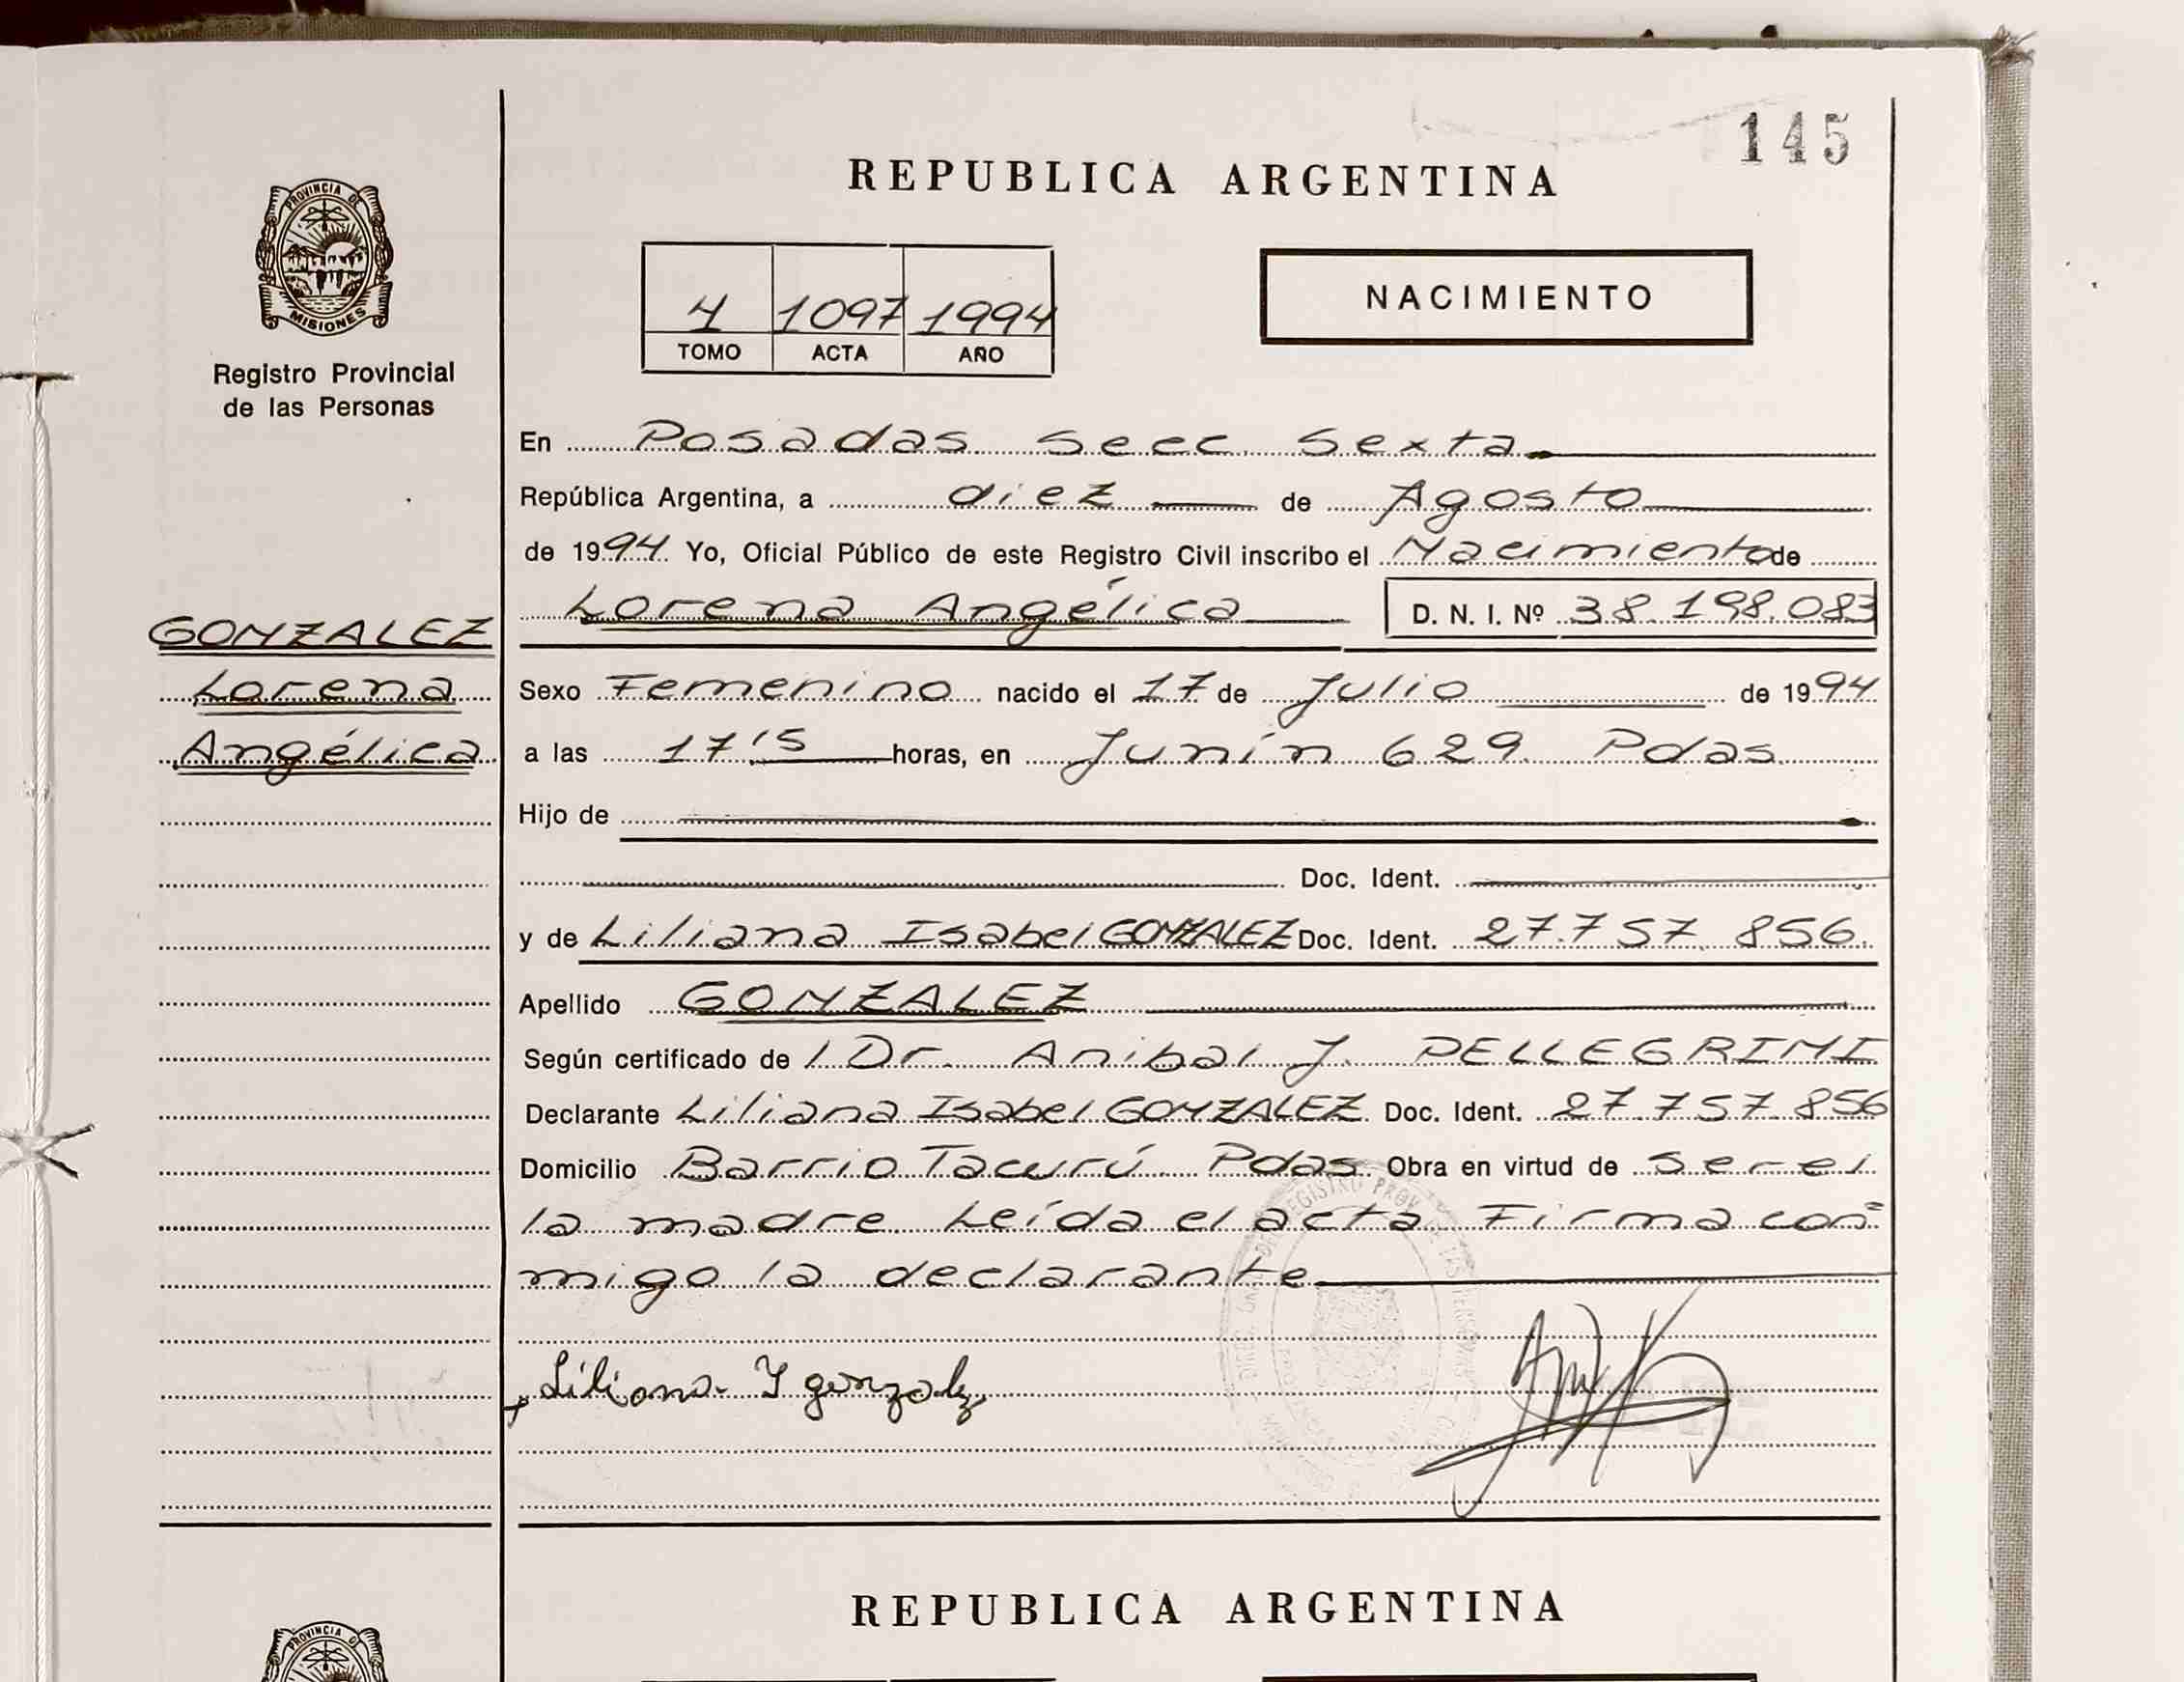 145
REPUBLICA ARGENTINA
PROVINCIA DE
MISIONES
Registro Provincial
de las Personas
4 1097 1994
TOMO ACTA AÑO
NACIMIENTO
En Posadas Secc Sexta
República Argentina, a diez de Agosto
de 1994 Yo, Oficial Público de este Registro Civil inscribo el Nacimiento de
Lorena Angélica D. N. I. Nº 38.198.083
GONZALEZ
Lorena
Angélica
Sexo Femenino nacido el 17 de Julio de 1994
a las 17'15 horas, en Junín 629. Pdas.
Hijo de
Doc. Ident.
y de Liliana Isabel GONZALEZ Doc. Ident. 27.757.856.
Apellido GONZALEZ
Según certificado de l Dr. Anibal J. PELLEGRINI
Declarante Liliana Isabel GONZALEZ Doc. Ident. 27.757.856
Domicilio Barrio Tacurú. Pdas. Obra en virtud de ser el
la madre. Leída el acta Firma con=
migo la declarante
Liliana I gonzalez
REPUBLICA ARGENTINA
PROVINCIA DE